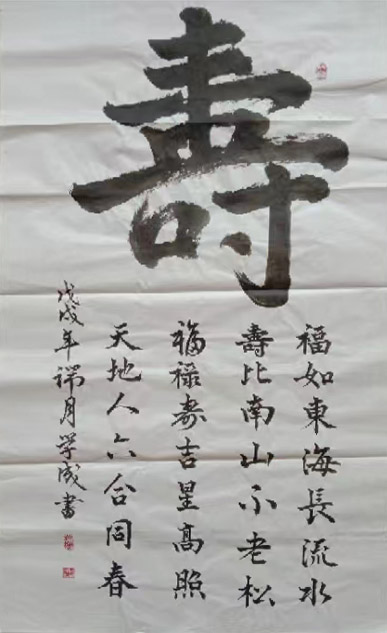 壽
福如東海長流水
壽比南山不老松
福祿寿吉星高照
天地人六合同春
戊戌年端月学成書